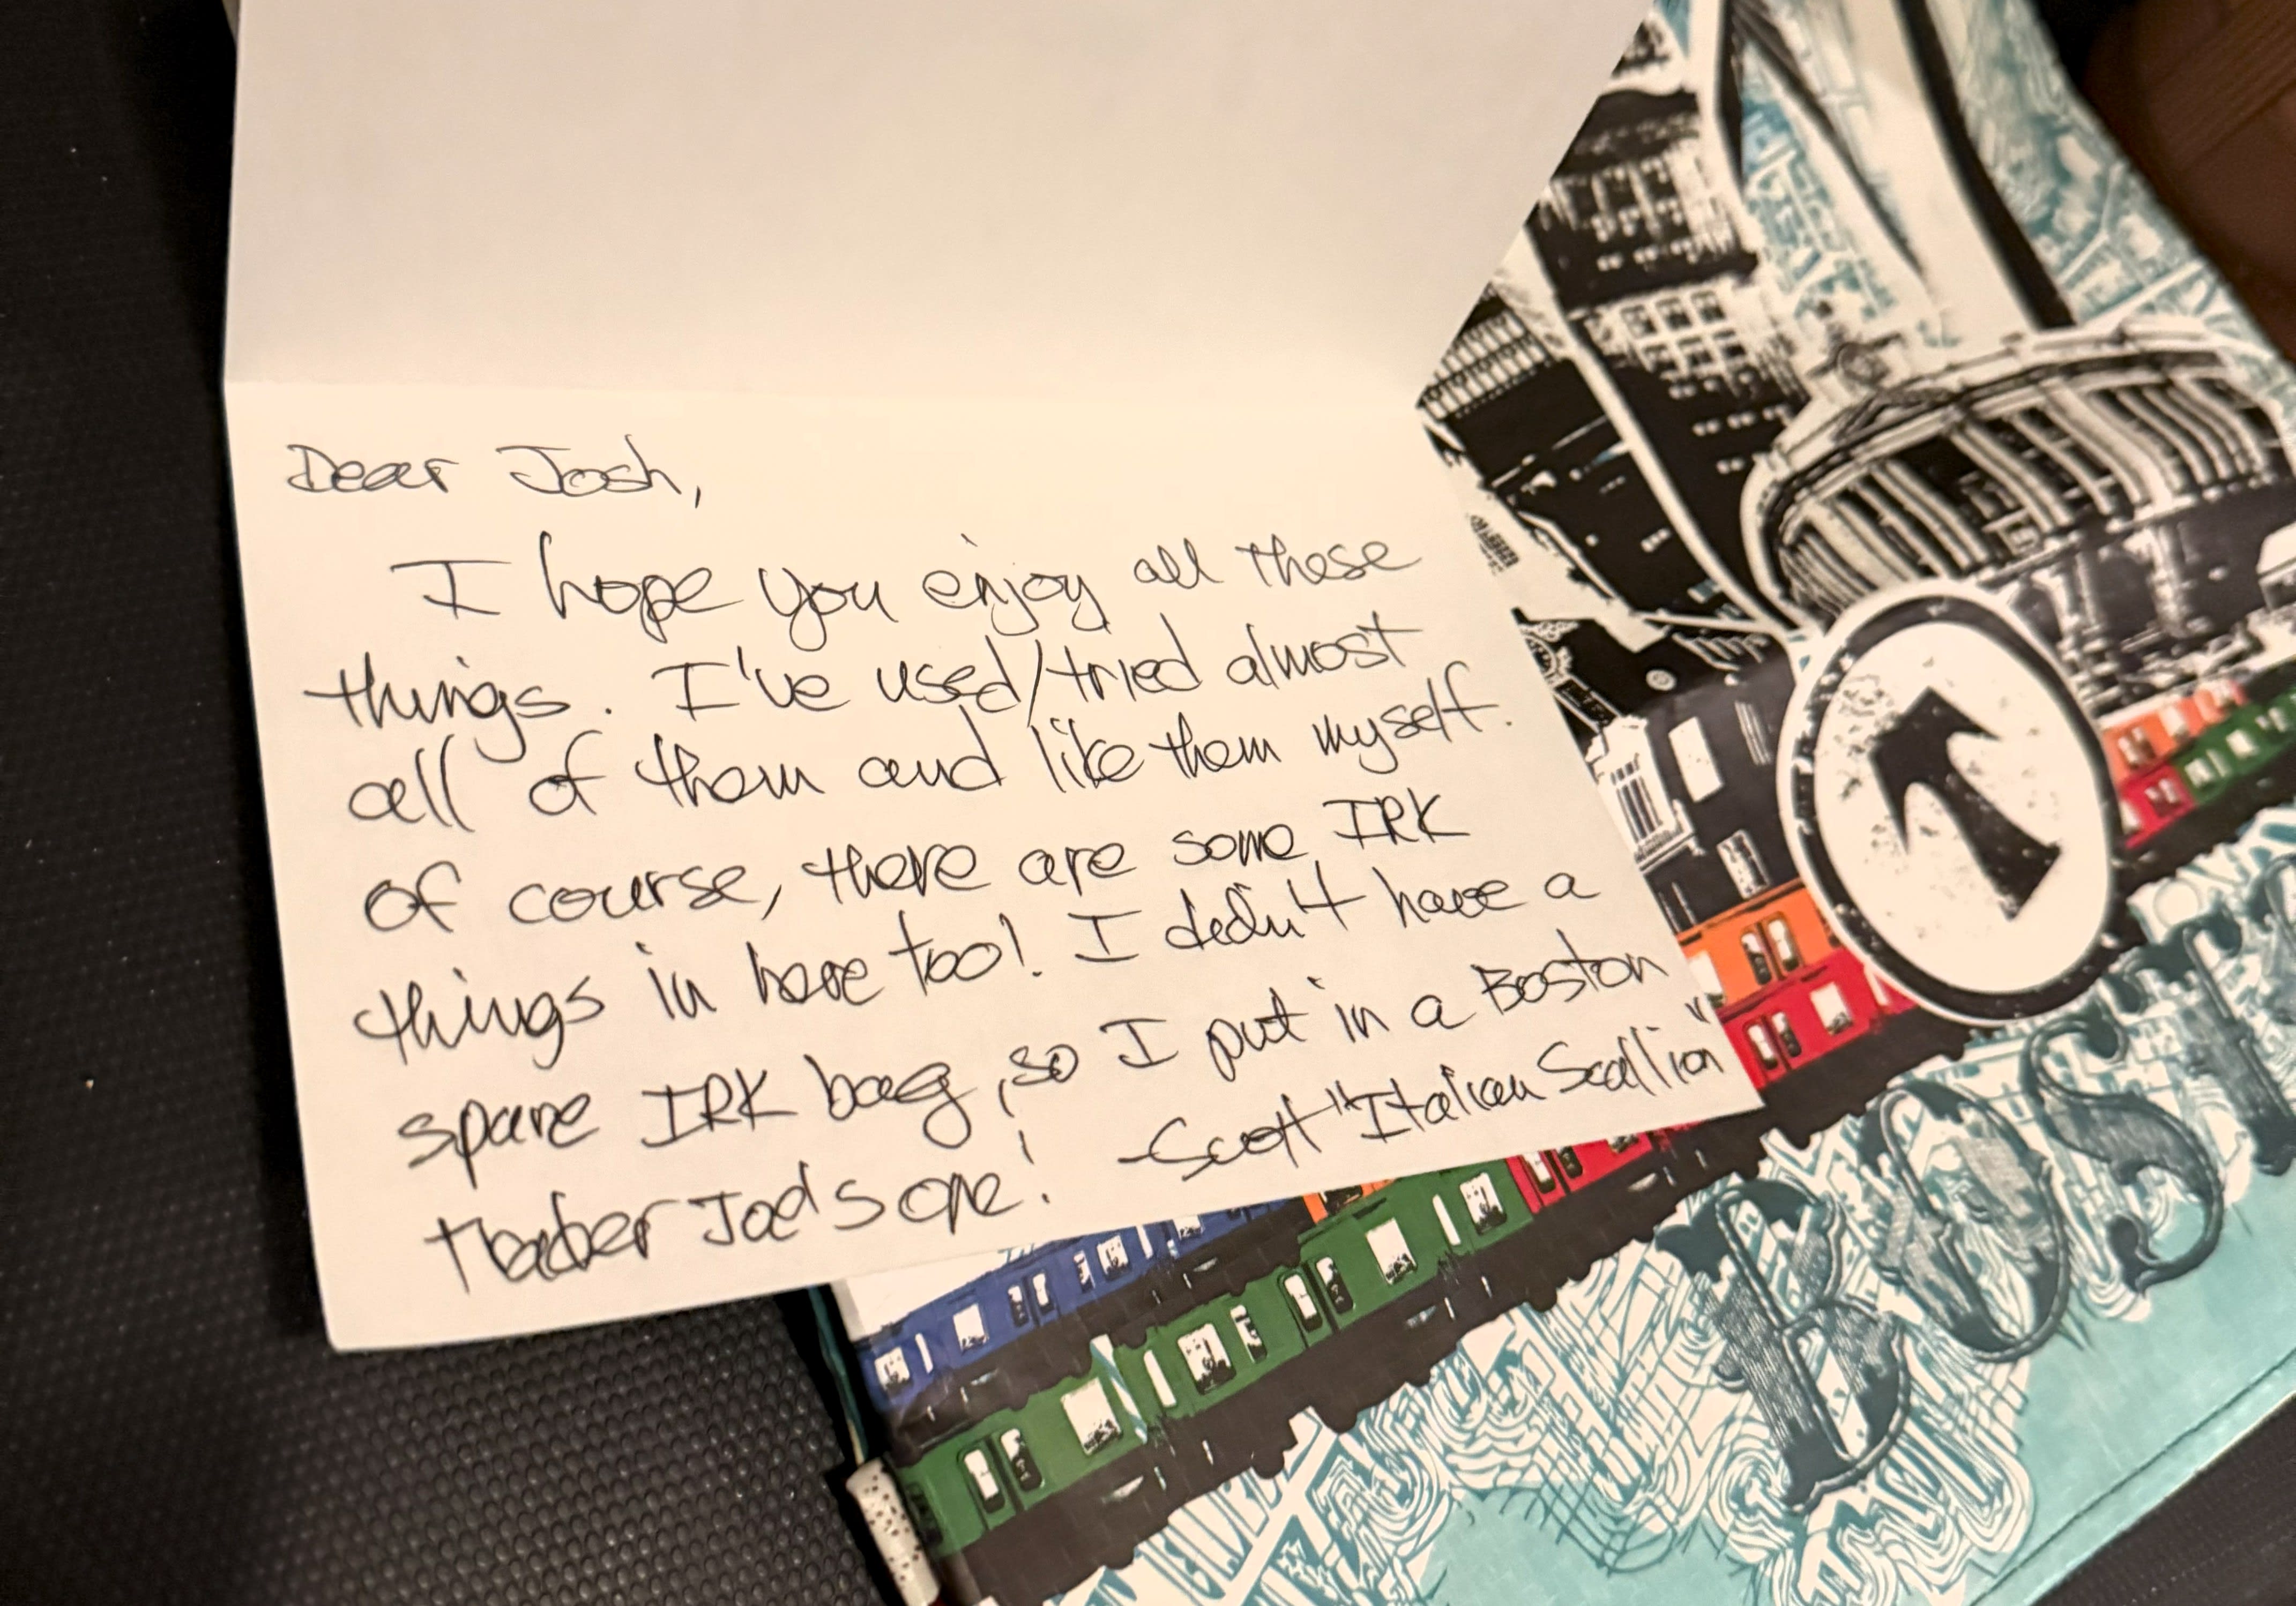 Dear Josh,
I hope you enjoy all these
things. I've used/tried almost
all of them and like them myself.
Of course, there are some IRK
things in here too! I didn't have a
spare IRK bag, so I put in a Boston
Trader Joe's one! -Scott "Italian Scallion"
T
BOST